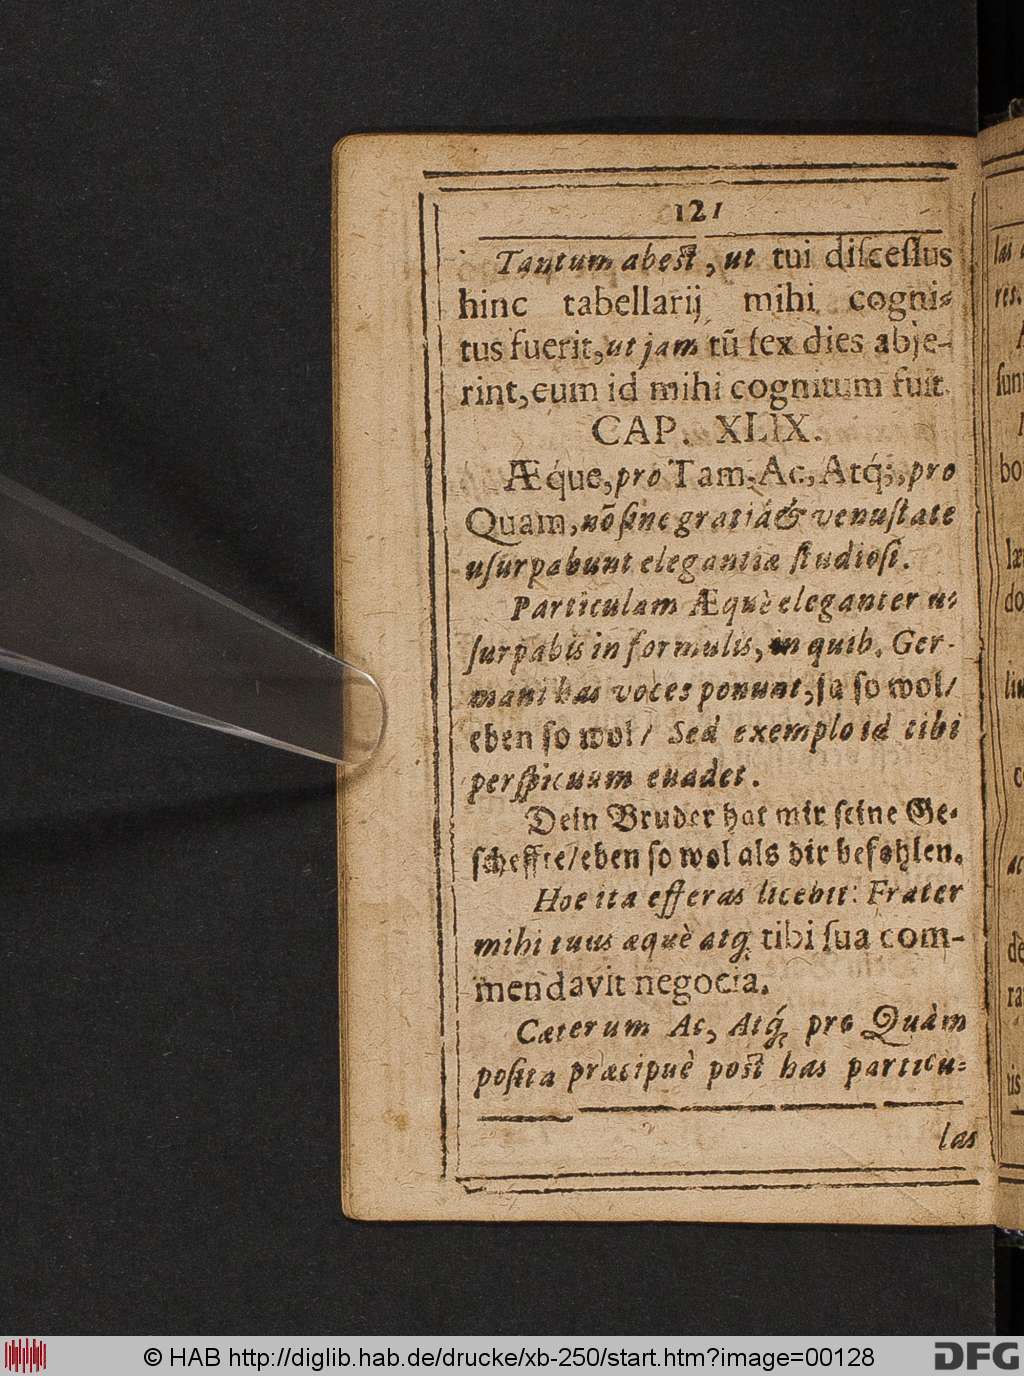 121
Tantum abest, ut tui diſceſſus
hinc tabellarij mihi cogni⸗
tus fuerit, ut jam tũ ſex dies abje-
rint, cum id mihi cognitum fuit.
CAP. XLIX.
Æq́ue, pro Tam, Ac, Atq́;, pro
Quam, nõ ſine gratiâ & venuſtate
uſurpabunt elegantiæ ſtudioſi.
Particulam Æquè eleganter u⸗
ſurpabis in formulis, in quib. Ger-
mani has voces ponunt, ja ſo wol/
eben ſo wol/ Sed exemplo id tibi
perſpicuum euadet.
Dein Bruder hat mir ſeine Ge⸗
ſcheffte/eben ſo wol als dir befohlen.
Hoc ita efferas licebit: Frater
mihi tuus æquè atq; tibi ſua com-
mendavit negocia.
Cæterum Ac, Atq́; pro Quàm
poſita præcipuè poſt has particu⸗
las
las
res.
ſunt
bo
læ
do
de
ra
tis
© HAB http://diglib.hab.de/drucke/xb-250/start.htm?image=00128
DFG